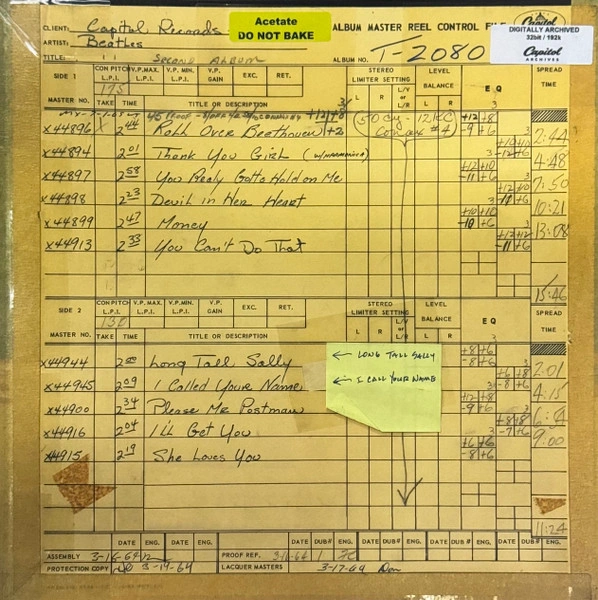 CLIENT: Capitol Records
Acetate
DO NOT BAKE
ALBUM MASTER REEL CONTROL FILE
Capitol
ARTIST: Beatles
DIGITALLY ARCHIVED
32bit / 192k
Capitol
ARCHIVES
TITLE: " " SECOND ALBUM
ALBUM NO. T-2080
SIDE 1 CON PITCH L.P.I. V.P.MAX. L.P.I. V.P.MIN. L.P.I. V.P. GAIN EXC. RET. STEREO LIMITER SETTING LEVEL BALANCE EQ SPREAD
175
L R or L/R L R TIME
MASTER NO. TAKE TIME TITLE OR DESCRIPTION
50 cy - 12KC
X44896 X 2 44 Roll Over Beethoven +2 -9 +6 3 2:44
X44894 2 01 Thank You Girl (W/HARMONICA) -12 +6 4:48
X44897 2 58 You Realy Gotta Hold on Me -11 +6 7:50
X44898 2 23 Devil in Her Heart -11 +6 10:21
X44899 2 47 Money -10 +6 13:08
X44913 2 33 You Can't Do That -11 +6
15:46
SIDE 2 CON PITCH L.P.I. V.P.MAX. L.P.I. V.P.MIN. L.P.I. V.P. GAIN EXC. RET. STEREO LIMITER SETTING LEVEL BALANCE EQ SPREAD
130
L R L/V or L/R L R TIME
MASTER NO. TAKE TIME TITLE OR DESCRIPTION
X44944 2 00 Long Tall Sally ← LONG TALL SALLY +8 +6 -8 +6 2:01
X44945 2 09 I Called Your Name ← I CALL YOUR NAME +6 +8 -8 +6 4:15
X44900 2 34 Please Mr Postman +12 +8 -9 +6
X44916 2 04 I'll Get You +8 +8 -7 +6 9:00
X44915 2 19 She Loves You +6 +6 -8 +6
11:24
DATE ENG. DATE ENG. DATE ENG. DATE DUB# ENG. DATE DUB# ENG. DATE DUB# ENG.
ASSEMBLY 3-16-64 PROOF REF. 1
PROTECTION COPY 3-19-64 LACQUER MASTERS 3-17-64